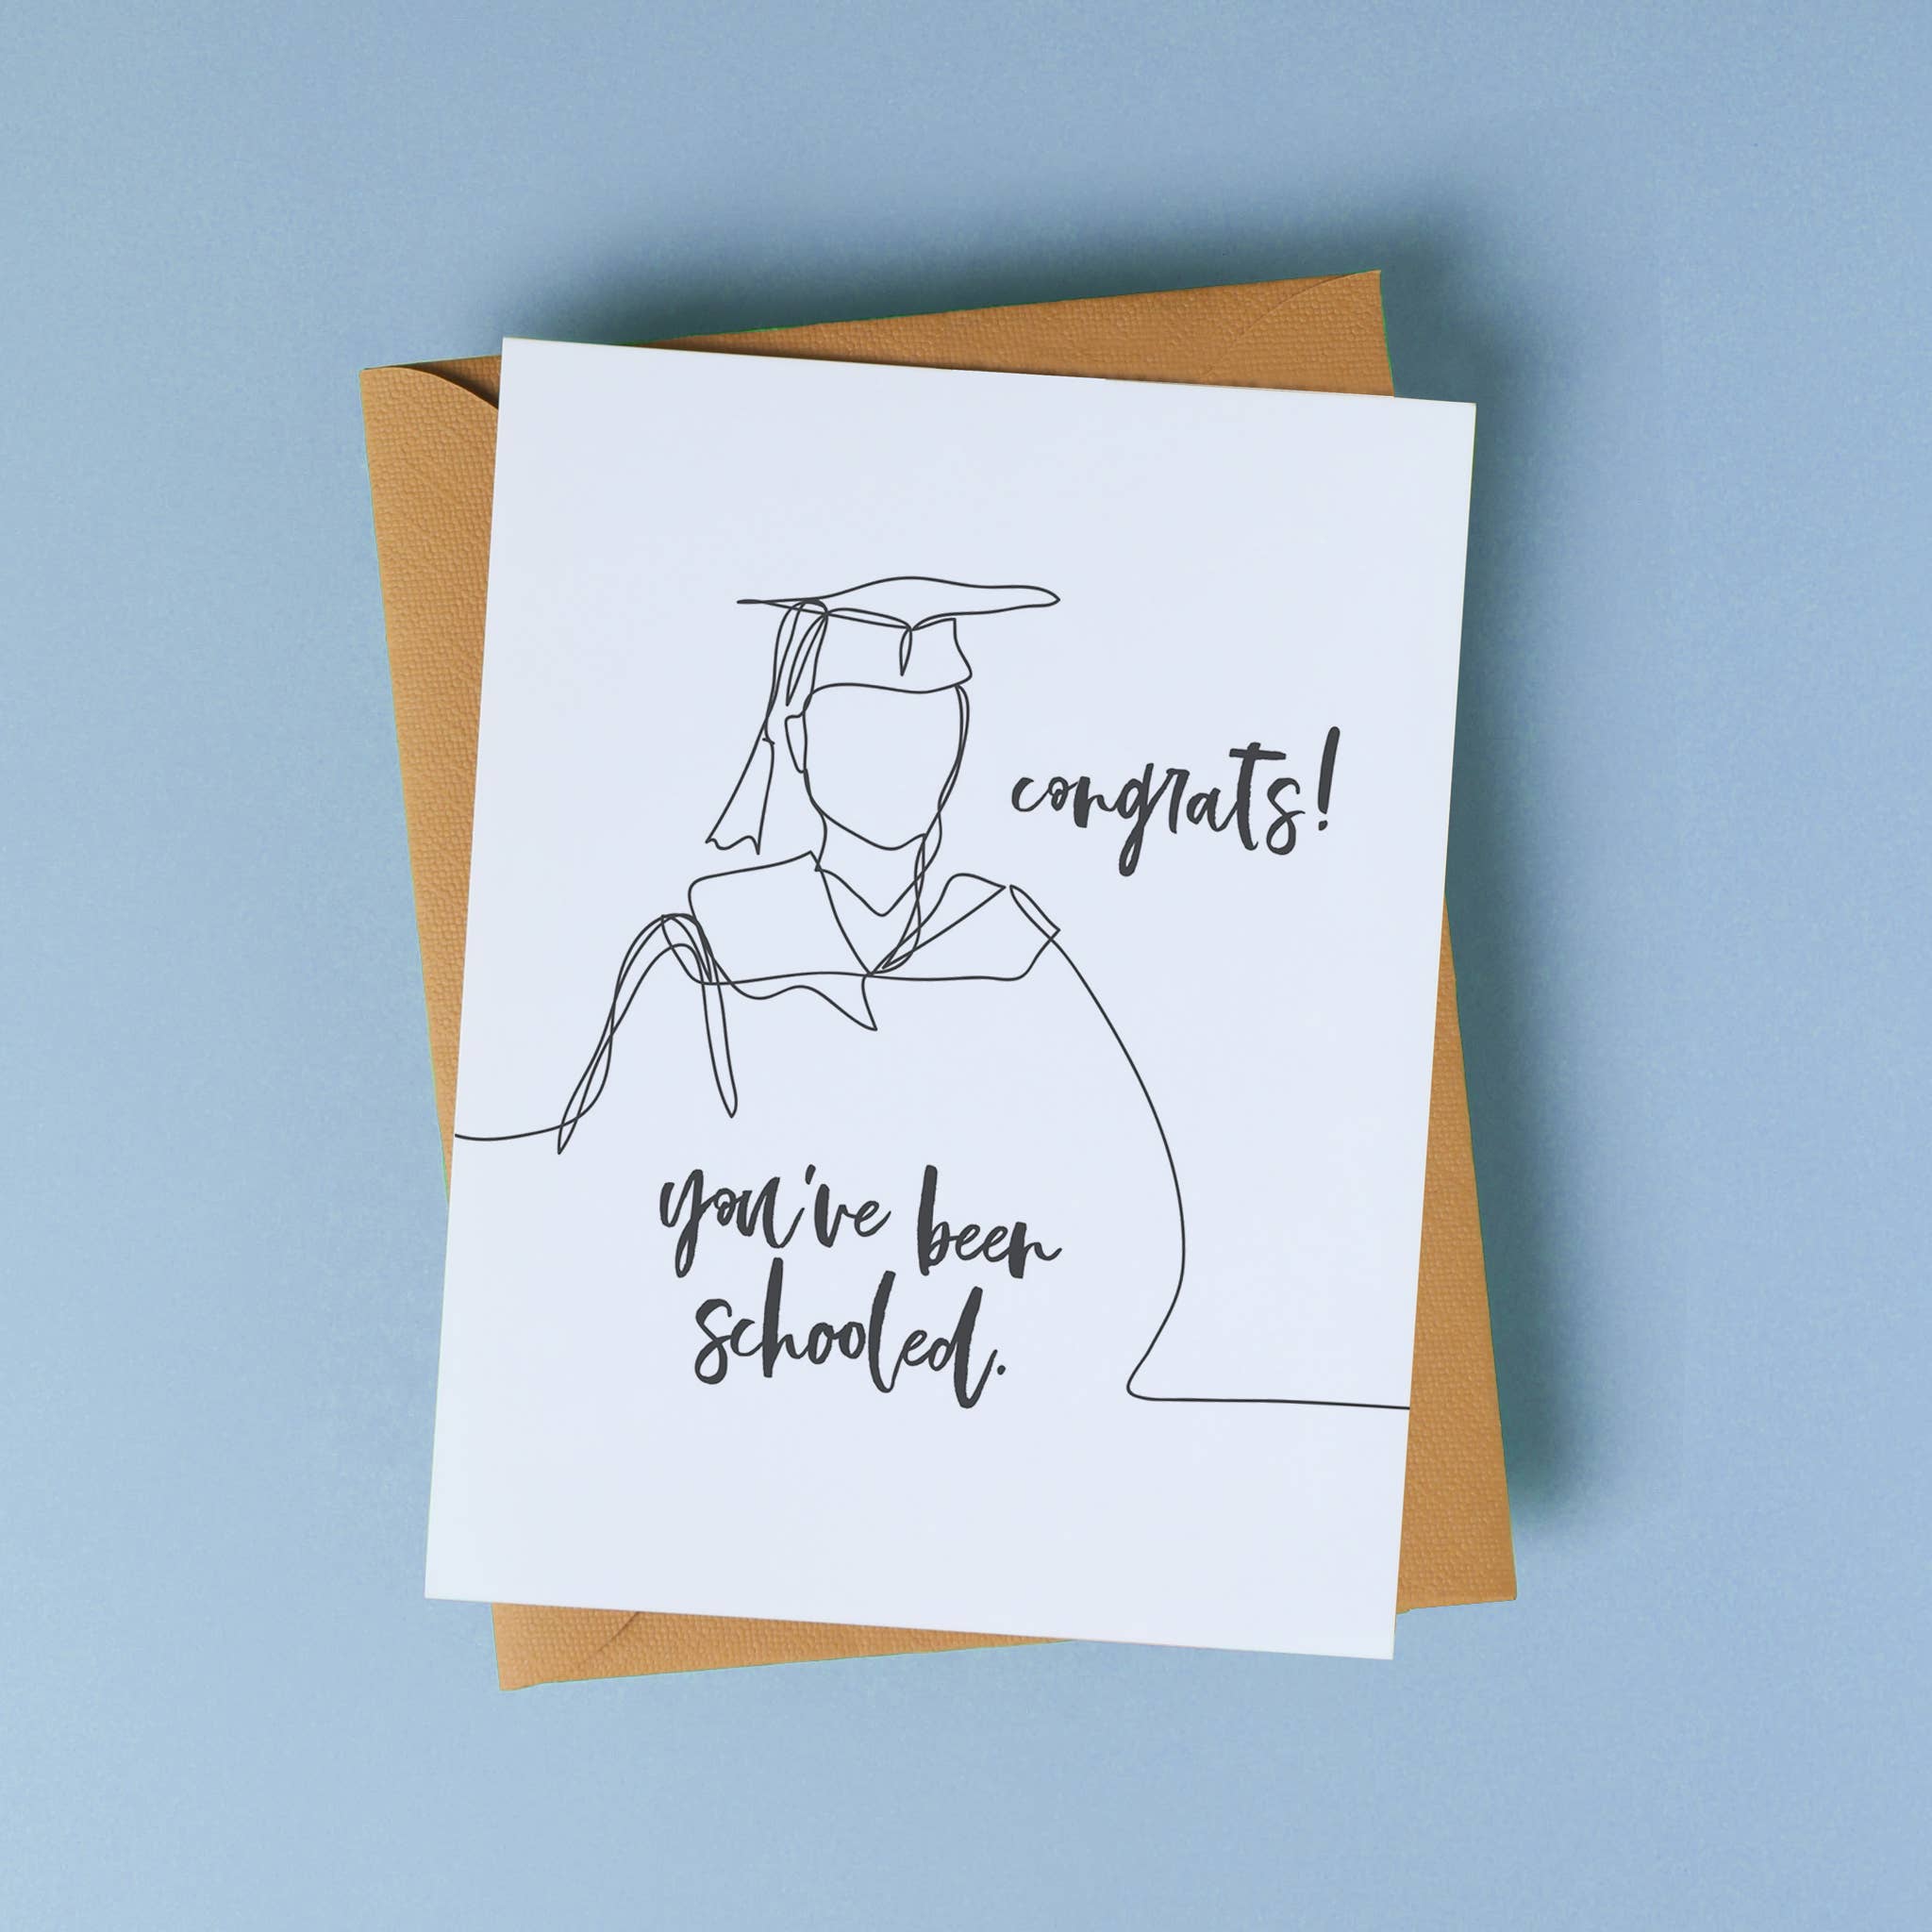 congrats!
you've been
schooled.